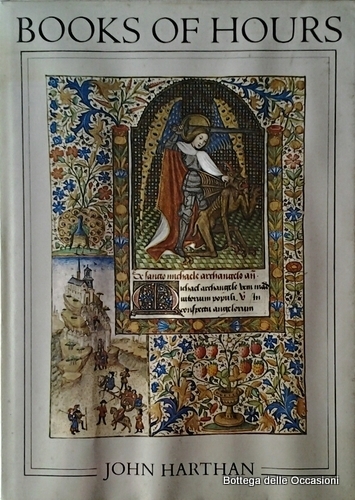 BOOKS OF HOURS
De sancto michaele archangelo añ
Michael archangele veni in adi
utorium populi. V In
conspectu angelorum
JOHN HARTHAN
Bottega delle Occasioni